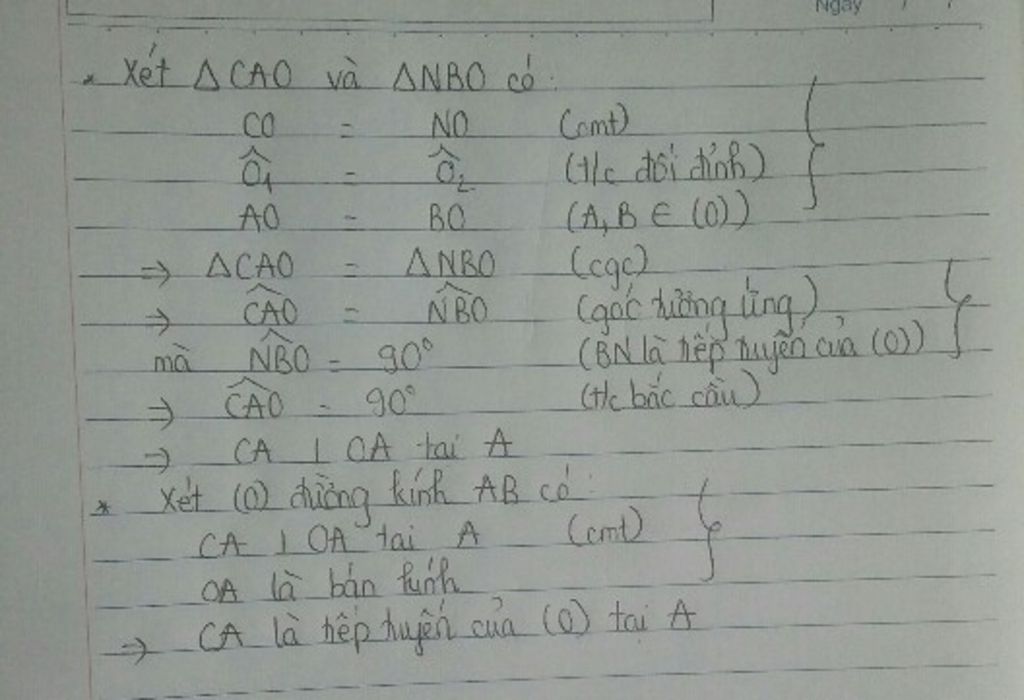 Ngày / /
* Xét ΔCAO và ΔNBO có:
CO = NO (cmt)
Ô₁ = Ô₂ (t/c đối đỉnh)
AO = BO (A,B ∈ (O))
=> ΔCAO = ΔNBO (cgc)
=> \widehat{CAO} = \widehat{NBO} (góc tương ứng)
mà \widehat{NBO} = 90° (BN là tiếp tuyến của (O))
=> \widehat{CAO} = 90° (t/c bắc cầu)
=> CA ⊥ OA tại A
* Xét (O) đường kính AB có:
CA ⊥ OA tại A (cmt)
OA là bán kính
=> CA là tiếp tuyến của (O) tại A